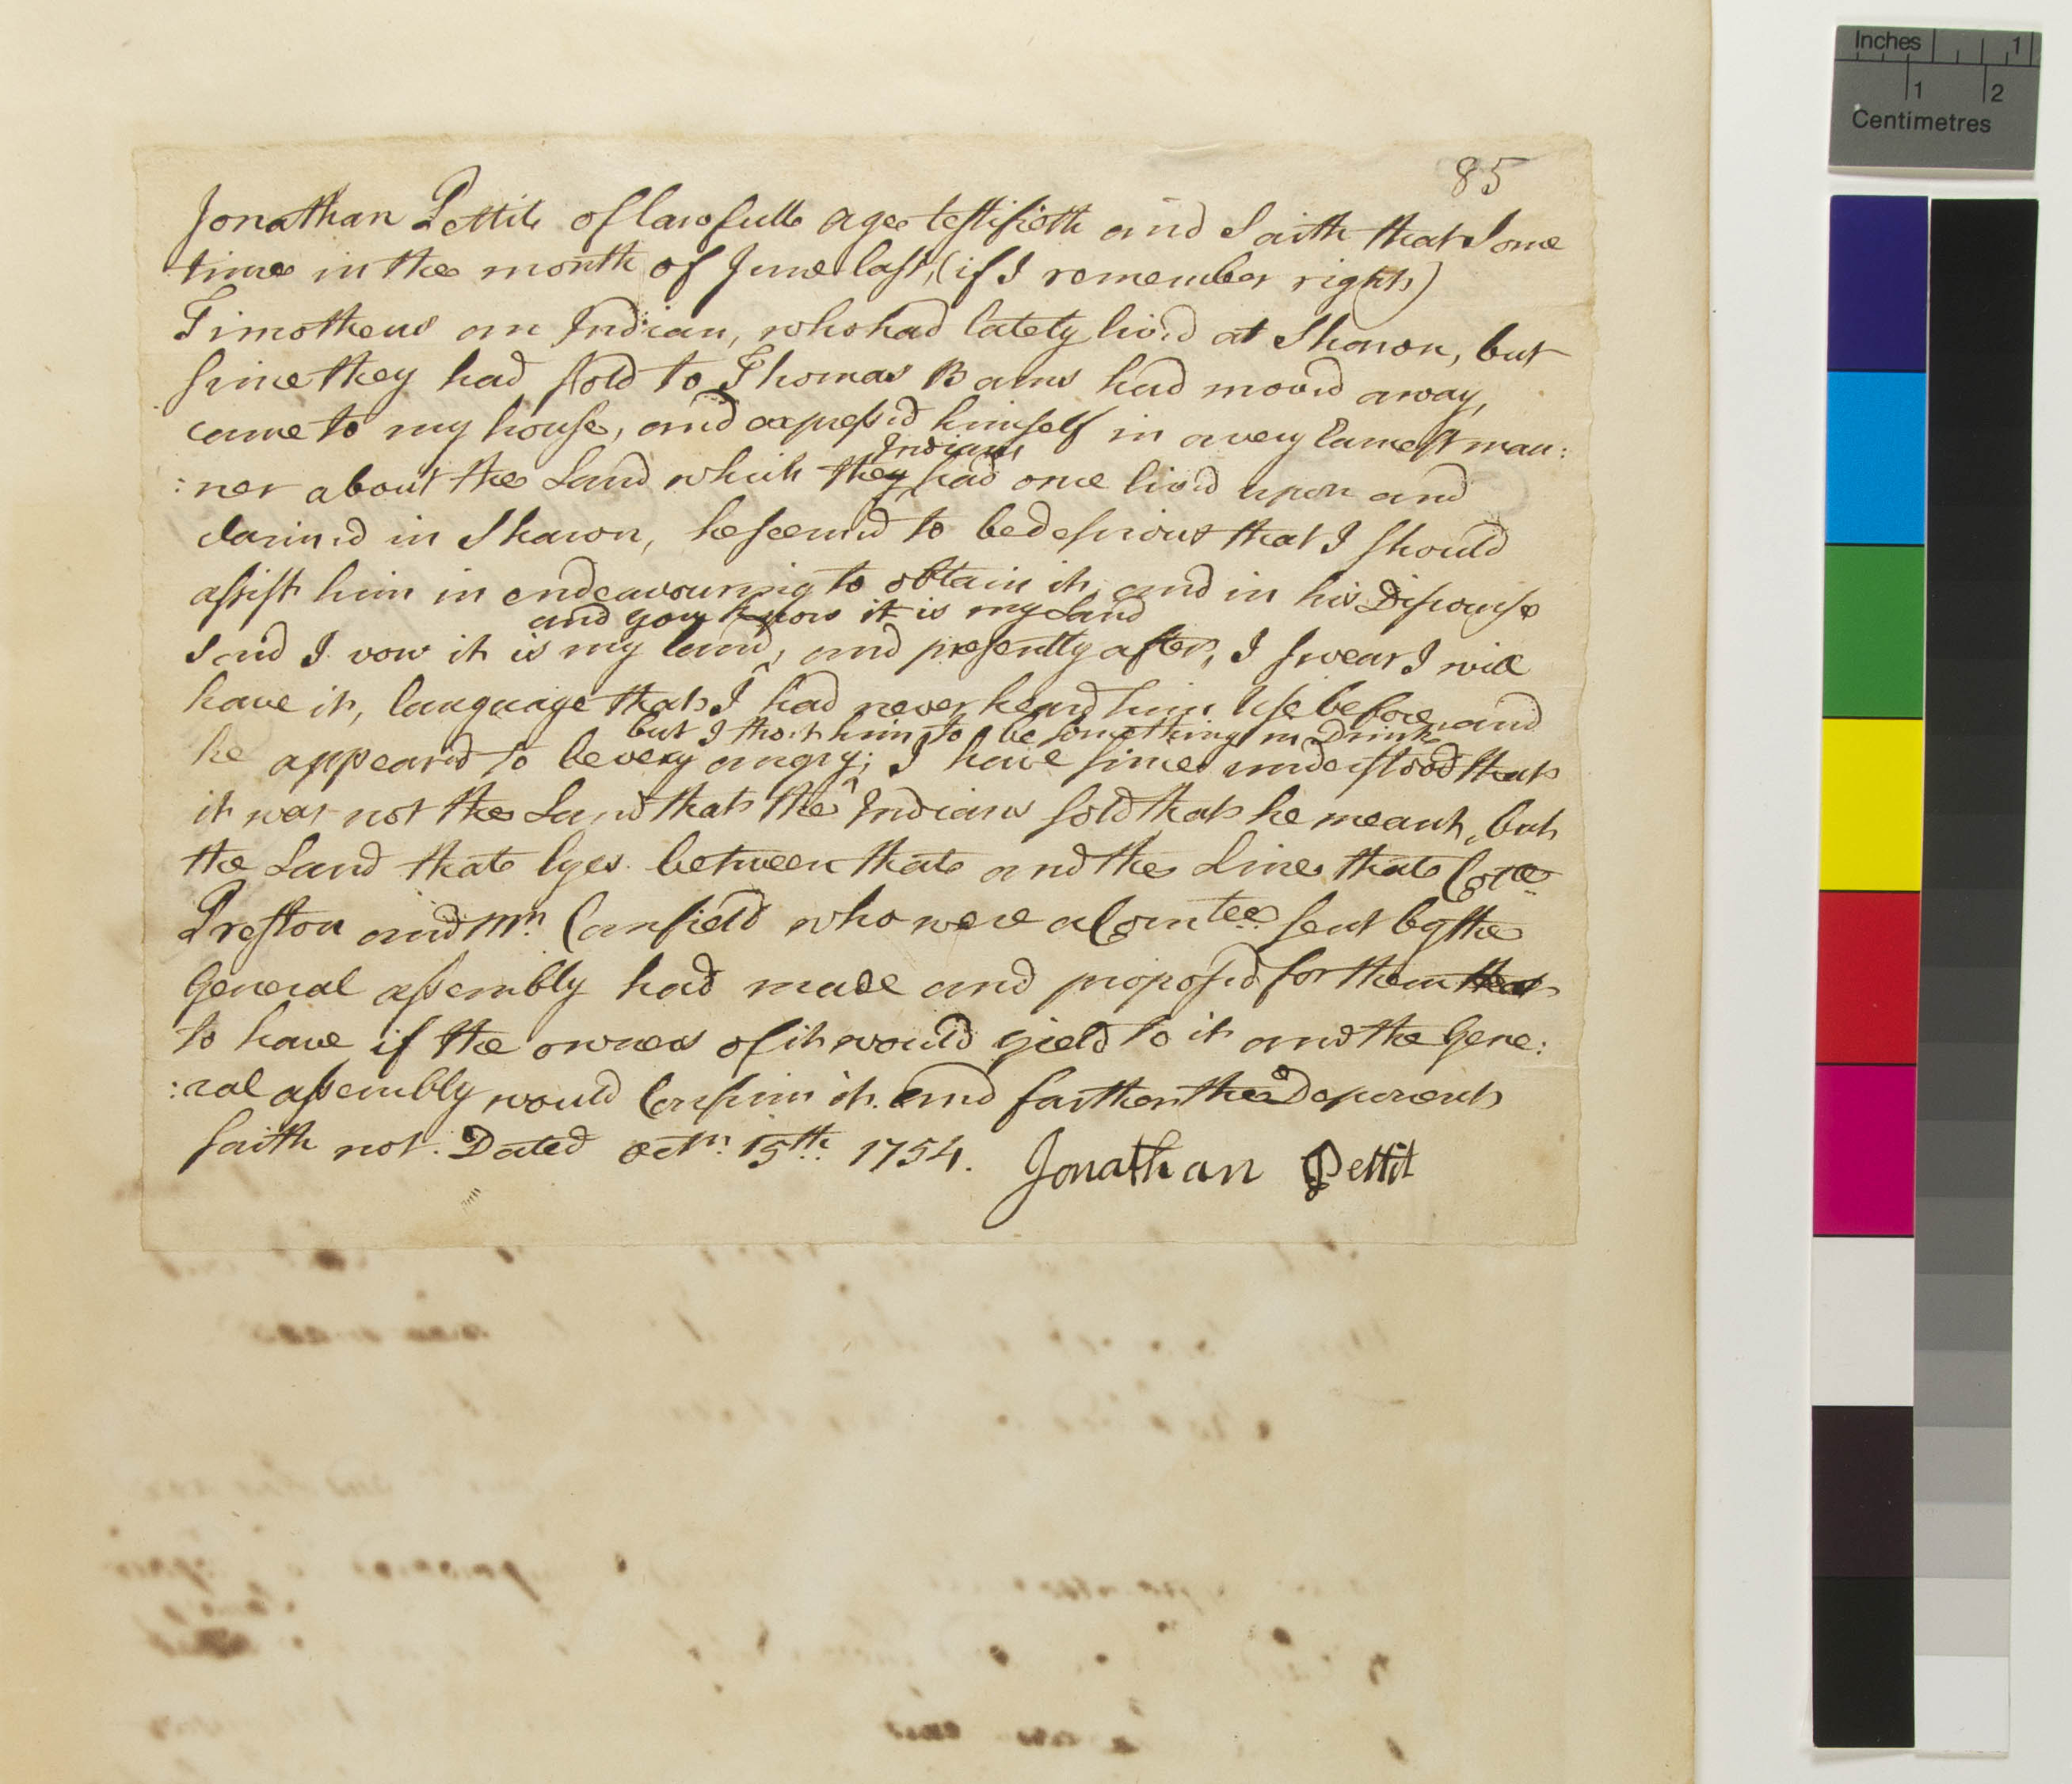 85
Jonathan Pettit of lawfull age testifieth and Saith that Some
time in the month of June last, (if I remember right)
Timotheus an Indian, who had lately liv'd at Sharon, but
since they had sold to Thomas Barns had mov'd away,
came to my house, and express'd himself in a very Earnest man:
Indians
:ner about the Land which they had once liv'd upon and
claim'd in Sharon, he seem'd to be desirous that I should
assist him in endeavouring to obtain it, and in his Discourse
and you know it is my Land
Said I vow it is my land, and presently after, I swear I will
have it, language that I had never heard him Use before, and
but I tho't him to be something in Drink
he appear'd to be very angry; I have since understood that
it was not the Land that the Indians sold that he meant, but
the Land that lyes between that and the Line that Coll
Preston and Mr. Canfield who were a Comtee. sent by the
General assembly had made and propos'd for them that
to have if the owners of it would yield to it and the Gene:
:ral assembly would Confirm it. And farther the Deponent
saith not. Dated Octr. 15th. 1754. Jonathan Pettit
Inches 1
1 2
Centimetres